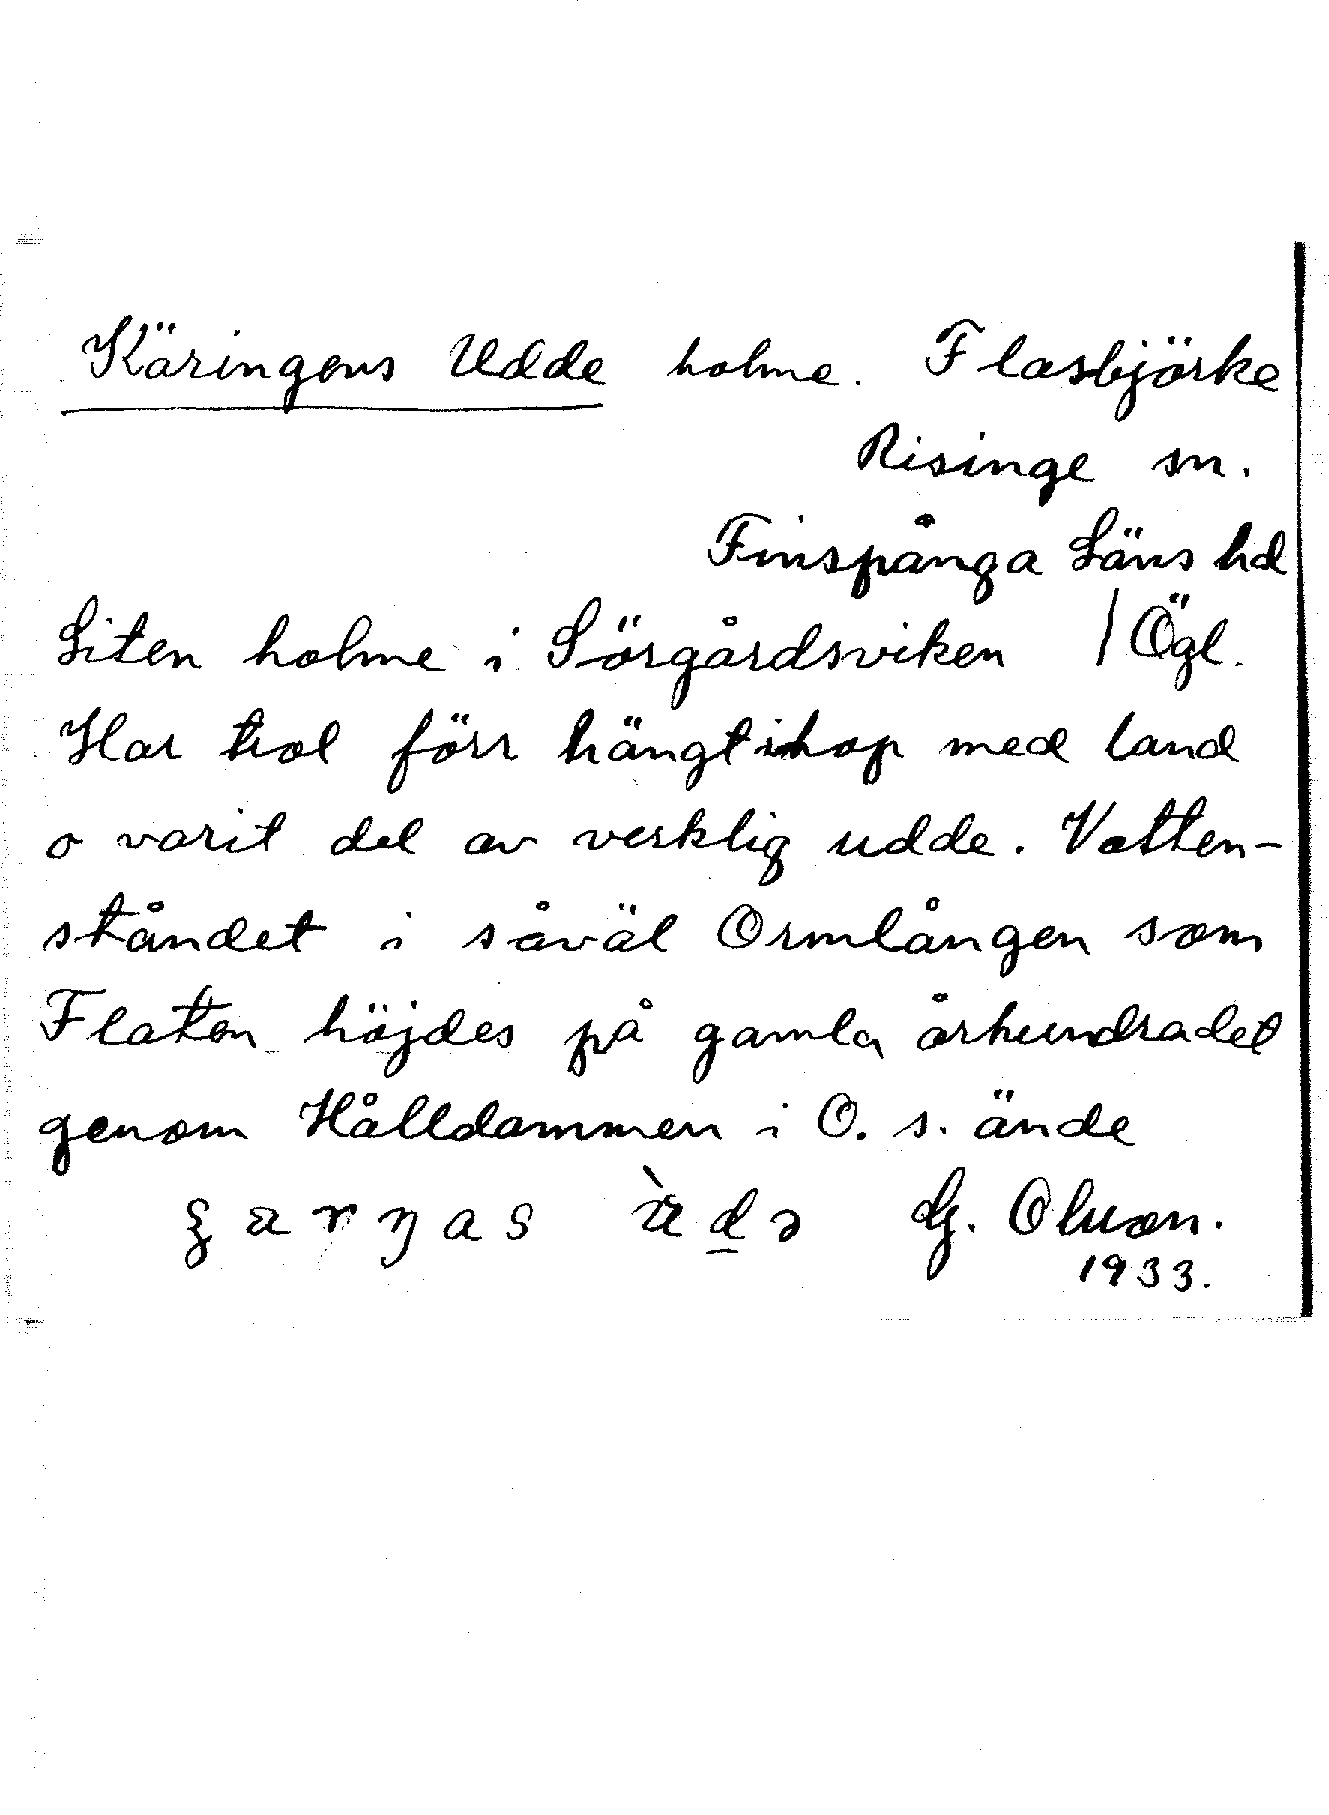 Käringens Udde holme. Flasbjörke
Risinge sn.
Finspånga Läns hd
Liten holme i Sörgårdsviken / Ögl.
Har trol förr hängt ihop med land
o varit del av verklig udde. Vatten-
ståndet i såväl Ormlången som
Flaten höjdes på gamla århundradet
genom Hålldammen i O. s. ände
G. Olson.
1933.